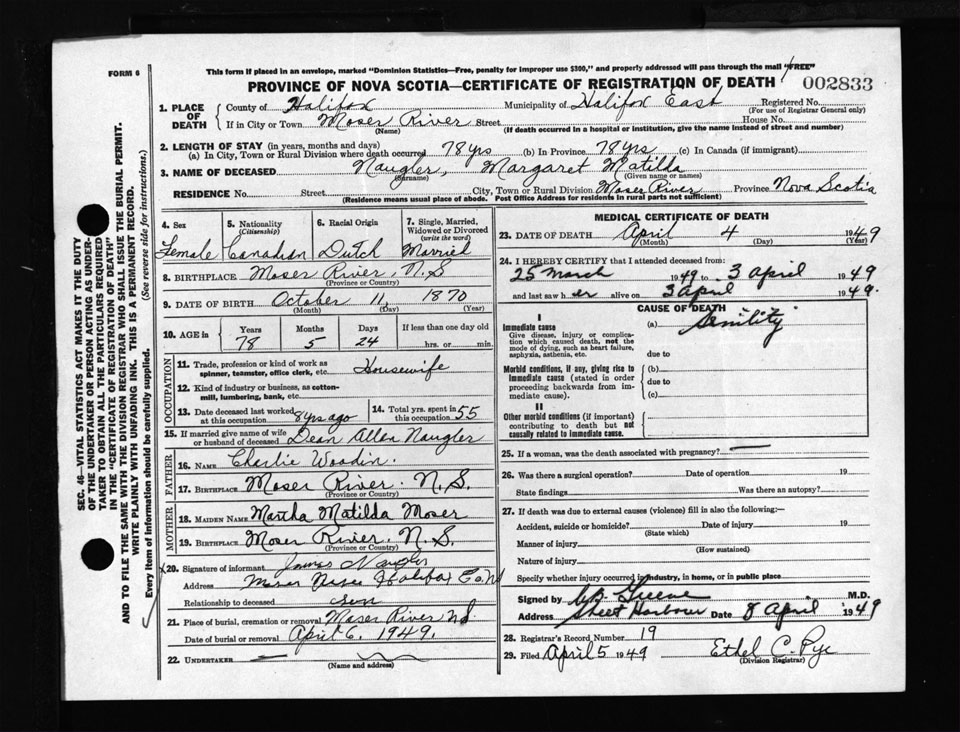 FORM 6
This form if placed in an envelope, marked "Dominion Statistics—Free, penalty for improper use $300," and properly addressed will pass through the mail "FREE"
PROVINCE OF NOVA SCOTIA—CERTIFICATE OF REGISTRATION OF DEATH
002833
1. PLACE OF DEATH
County of Halifax Municipality of Halifax East Registered No.
(For use of Registrar General only)
If in City or Town Moser River Street House No.
(Name) (If death occurred in a hospital or institution, give the name instead of street and number)
2. LENGTH OF STAY (in years, months and days)
(a) In City, Town or Rural Division where death occurred 78 yrs (b) In Province 78 yrs (c) In Canada (if immigrant)
3. NAME OF DECEASED Naugler, Margaret Matilda
(Surname) (Given name or names)
RESIDENCE No. Street City, Town or Rural Division Moser River Province Nova Scotia
(Residence means usual place of abode. Post Office Address for residents in rural parts not sufficient)
4. Sex
Female
5. Nationality
(Citizenship)
Canadian
6. Racial Origin
Dutch
7. Single, Married, Widowed or Divorced
(write the word)
Married
8. BIRTHPLACE Moser River, N.S
(Province or Country)
9. DATE OF BIRTH October 11, 1870
(Month) (Day) (Year)
10. AGE in
Years Months Days If less than one day old
78 5 24 hrs. or min.
OCCUPATION
11. Trade, profession or kind of work as
spinner, teamster, office clerk, etc. Housewife
12. Kind of industry or business, as cotton-
mill, lumbering, bank, etc.
13. Date deceased last worked
at this occupation 8 yrs ago
14. Total yrs. spent in
this occupation 55
15. If married give name of wife
or husband of deceased Dean Allen Naugler
FATHER
16. NAME Charlie Woodin.
17. BIRTHPLACE Moser River. N.S.
(Province or Country)
MOTHER
18. MAIDEN NAME Martha Matilda Moser
19. BIRTHPLACE Moser River. N.S.
(Province or Country)
20. Signature of informant James Naugler
Address Moser River Halifax Co.
Relationship to deceased son
21. Place of burial, cremation or removal Moser River NS
Date of burial or removal April 6, 1949.
22. UNDERTAKER
(Name and address)
MEDICAL CERTIFICATE OF DEATH
23. DATE OF DEATH April 4 1949
(Month) (Day) (Year)
24. I HEREBY CERTIFY that I attended deceased from:
25 March 1949 to 3 April 1949
and last saw her alive on 3 April 1949.
CAUSE OF DEATH
I
Immediate cause
Give disease, injury or complica-
tion which caused death, not the
mode of dying, such as heart failure,
asphyxia, asthenia, etc.
(a) Senility
due to
Morbid conditions, if any, giving rise to
immediate cause (stated in order
proceeding backwards from im-
mediate cause).
(b)
due to
(c)
II
Other morbid conditions (if important)
contributing to death but not
causally related to immediate cause.
25. If a woman, was the death associated with pregnancy?
26. Was there a surgical operation? Date of operation 19
State findings Was there an autopsy?
27. If death was due to external causes (violence) fill in also the following:—
Accident, suicide or homicide? Date of injury 19
(State which)
Manner of injury
(How sustained)
Nature of injury
Specify whether injury occurred in industry, in home, or in public place
Signed by Greene M.D.
Address Sheet Harbour Date 8 April 1949
28. Registrar's Record Number 19
29. Filed April 5 1949 Ethel C. Pye
(Division Registrar)
SEC. 46—VITAL STATISTICS ACT MAKES IT THE DUTY
OF THE UNDERTAKER OR PERSON ACTING AS UNDER-
TAKER TO OBTAIN ALL THE PARTICULARS REQUIRED
IN THE "CERTIFICATE OF REGISTRATION OF DEATH"
AND TO FILE THE SAME WITH THE DIVISION REGISTRAR WHO SHALL ISSUE THE BURIAL PERMIT.
WRITE PLAINLY WITH UNFADING INK. THIS IS A PERMANENT RECORD.
Every item of information should be carefully supplied. (See reverse side for instructions.)